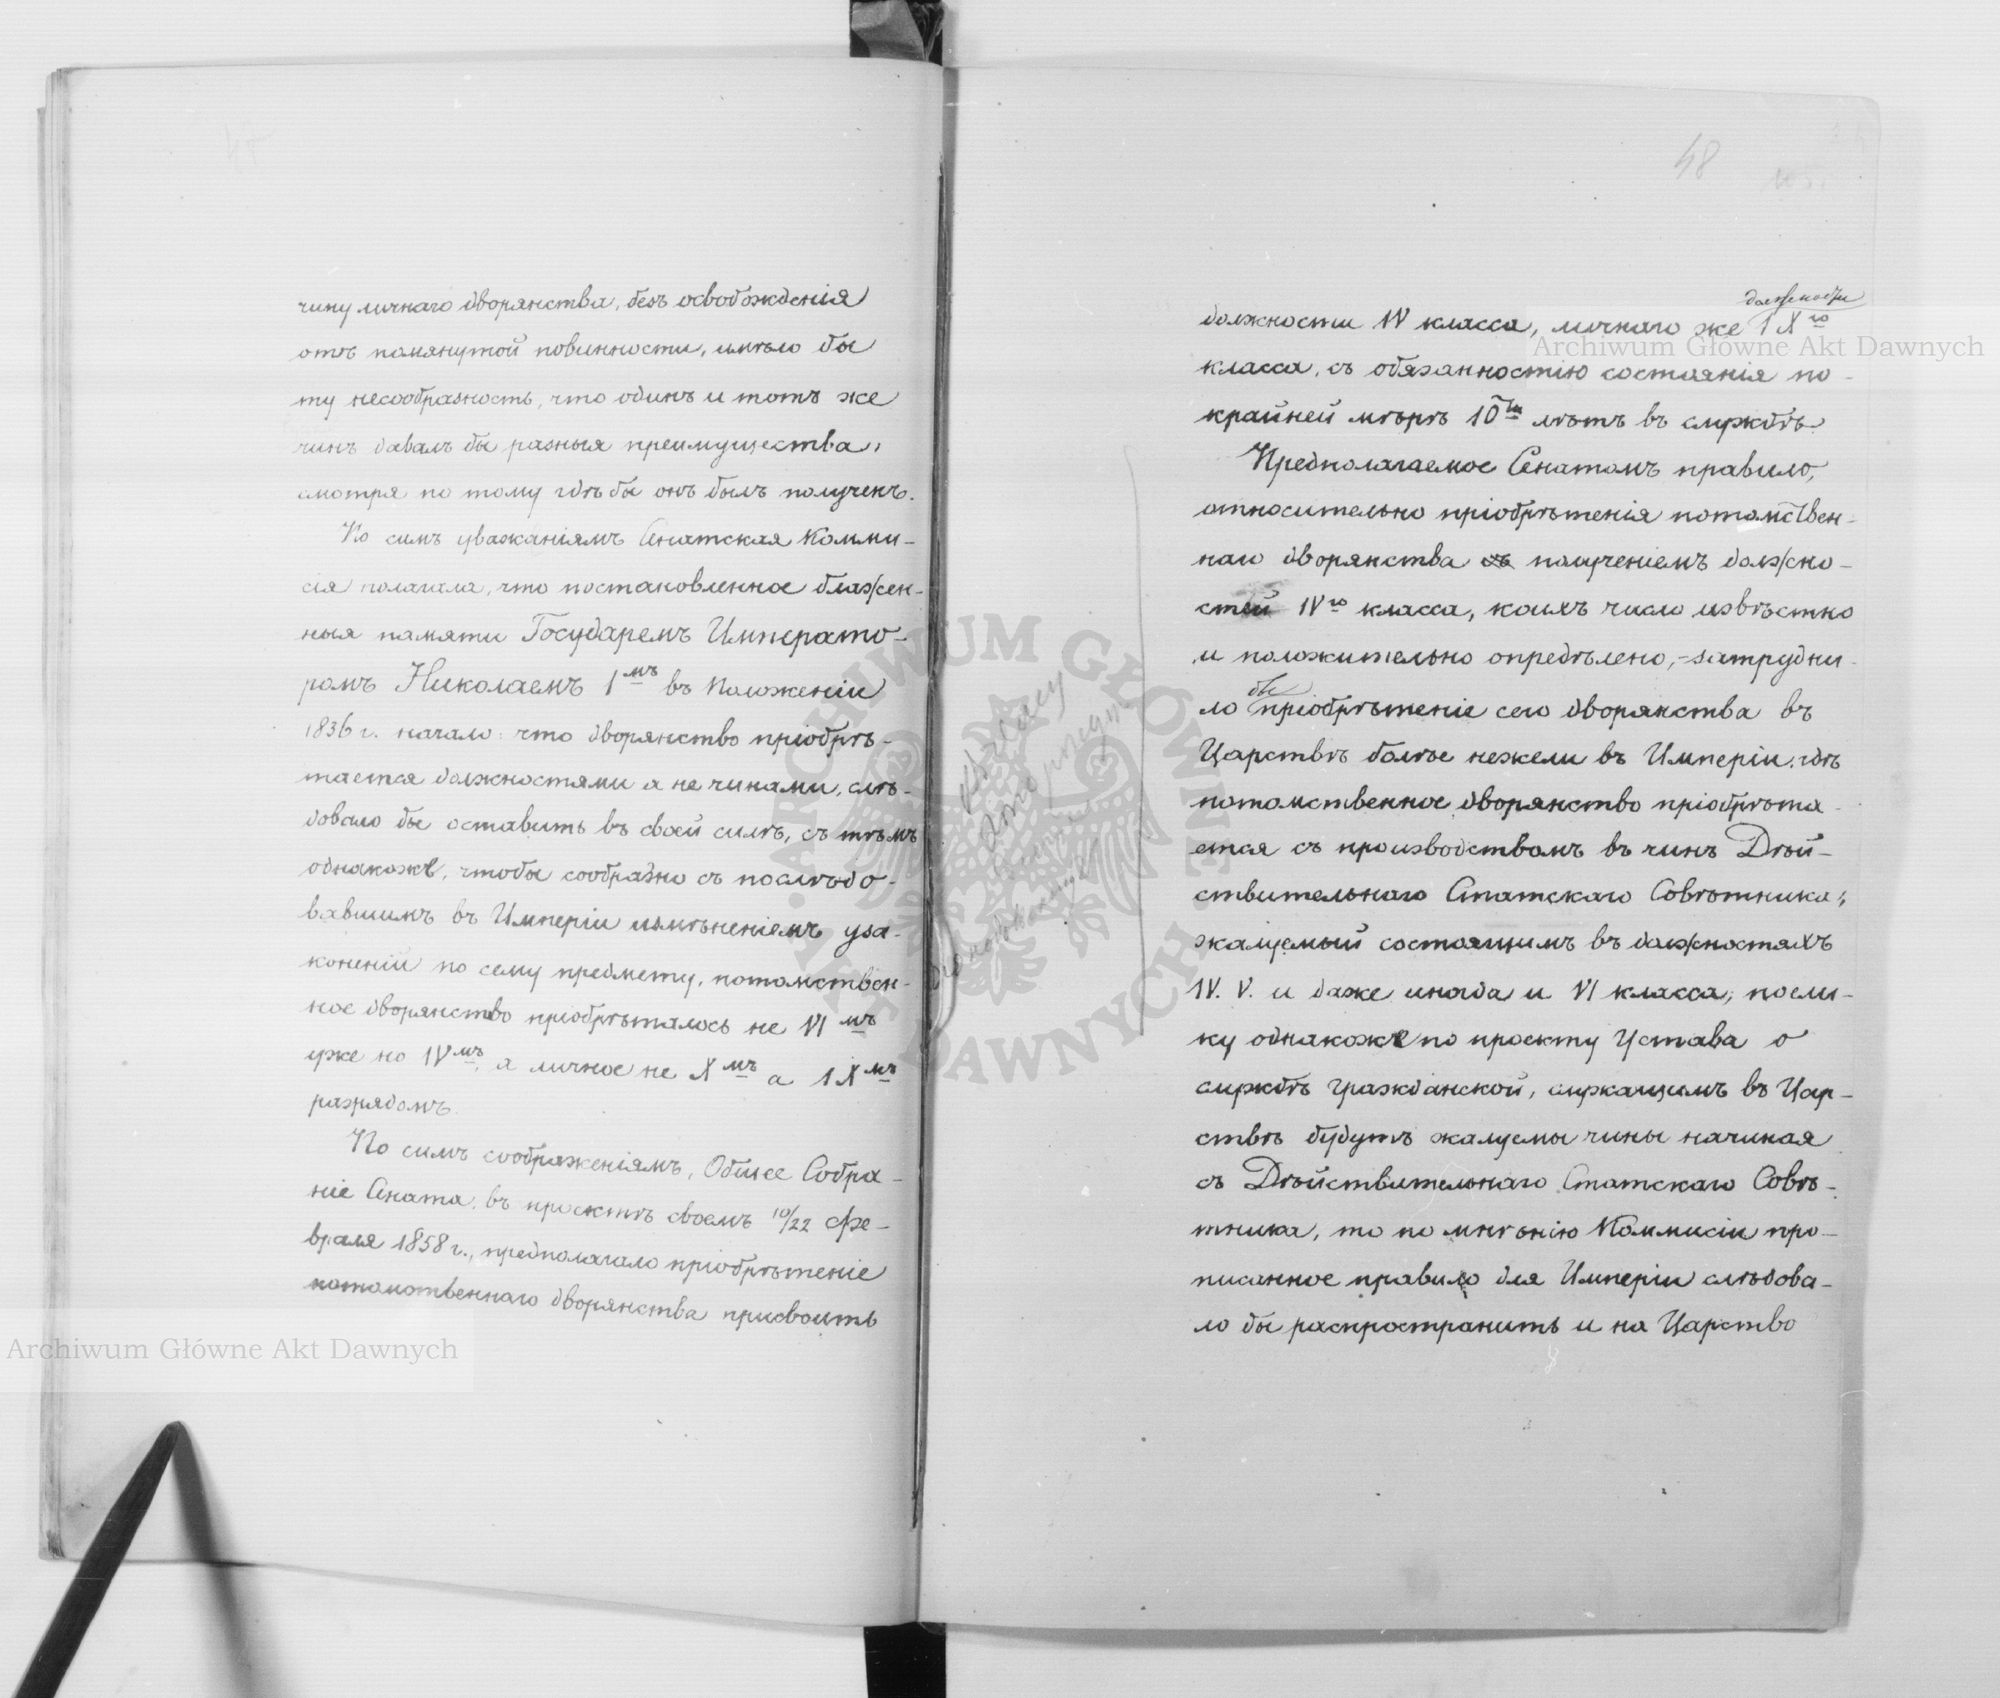 чину личнаго дворянства, безъ освобожденія
отъ помянутой повинности, имѣло бы
ту несообразность, что одинъ и тотъ же
чинъ давалъ бы разныя преимущества,
смотря по тому гдѣ бы онъ былъ полученъ.
По симъ уваженіямъ Сенатская Комми-
сія полагала, что постановленное блажен-
ныя памяти Государемъ Императо-
ромъ Николаемъ 1мъ въ Положеніи
1836 г. начало: что дворянство пріобрѣ-
тается должностями а не чинами, слѣ-
довало бы оставить въ своей силѣ, съ тѣмъ
однакоже, чтобы сообразно съ послѣдо-
вавшимъ въ Имперіи измѣненіемъ уза-
коненій по сему предмету, потомствен-
ное дворянство пріобрѣталось не VI мъ
уже но IV мъ, а личное не X мъ а IX мъ
разрядомъ.
По симъ соображеніямъ, Общее Собра-
ніе Сената, въ проектѣ своемъ 10/22 Фе-
враля 1858 г., предполагало пріобрѣтеніе
потомственнаго дворянства присвоить
48
должности
должности IV класса, личнаго же IX го
класса, съ обязанностію состоянія по-
крайней мѣрѣ 10ти лѣтъ въ службѣ.
Предполагаемое Сенатомъ правило,
относительно пріобрѣтенія потомствен-
наго дворянства съ полученіемъ должно-
стей IVго класса, коихъ число извѣстно
и положительно опредѣлено, - затрудни-
бы
ло пріобрѣтеніе сего дворянства въ
Царствѣ болѣе нежели въ Имперіи, гдѣ
потомственное дворянство пріобрѣта-
ется съ производствомъ въ чинъ Дѣй-
ствительнаго Статскаго Совѣтника,
жалуемый состоящимъ въ должностяхъ
IV. V. и даже иногда и VI класса; поели-
ку однакоже по проекту Устава о
службѣ гражданской, служащимъ въ Цар-
ствѣ будутъ жалуемы чины начиная
съ Дѣйствительнаго Статскаго Совѣ-
тника, то по мнѣнію Коммисіи про-
писанное правило для Имперіи слѣдова-
ло бы распространить и на Царство
Archiwum Główne Akt Dawnych
Archiwum Główne Akt Dawnych
ARCHIWUM GŁÓWNE AKT DAWNYCH